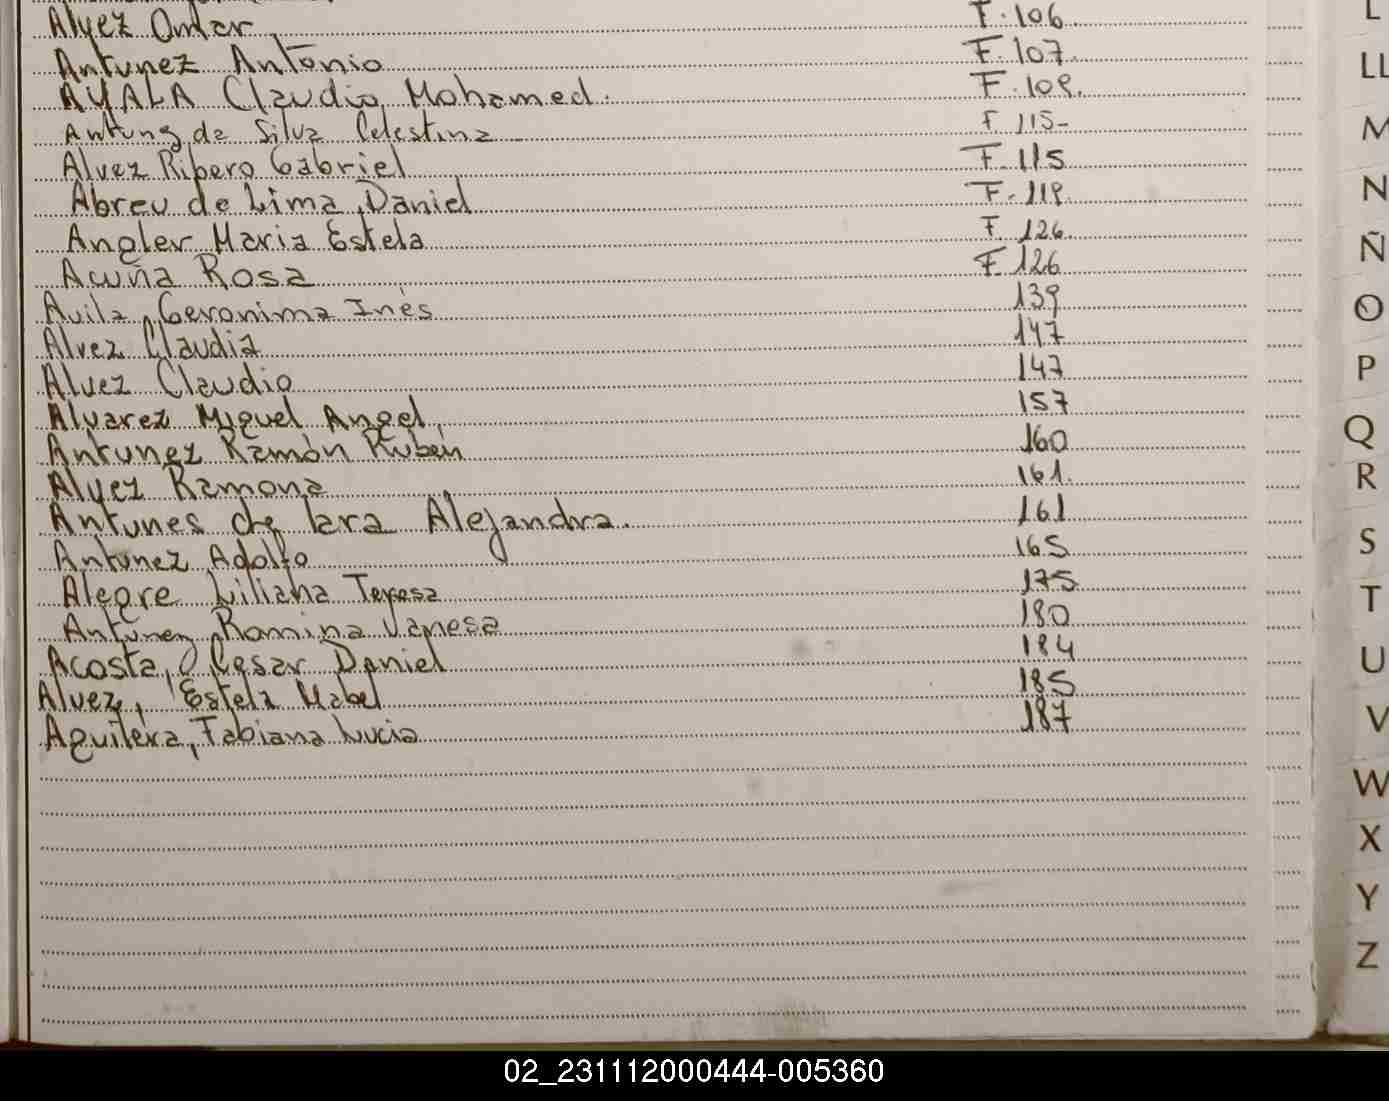 Alvez Omar F. 106.
Antunez Antonio F. 107.
AYALA Claudio Mohamed. F. 109.
Antung da Silva Celestina F 115-
Alvez Ribero Gabriel F. 115
Abreu de Lima, Daniel F. 119.
Angler Maria Estela F. 126.
Acuña Rosa F. 126
Avila, Geronima Inés 139
Alvez Claudia 147
Alvez Claudio 147
Alvarez Miguel Angel, 157
Antunez Ramón Rubén 160
Alvez Ramona 161.
Antunes de Lara Alejandra. 161
Antunez Adolfo 165
Alegre Liliana Teresa 175
Antunez, Romina Vanesa 180
Acosta, Cesar Daniel 184
Alvez, Estela Mabel 185
Aguilera, Fabiana Lucia 187
L
LL
M
N
Ñ
O
P
Q
R
S
T
U
V
W
X
Y
Z
02_231112000444-005360